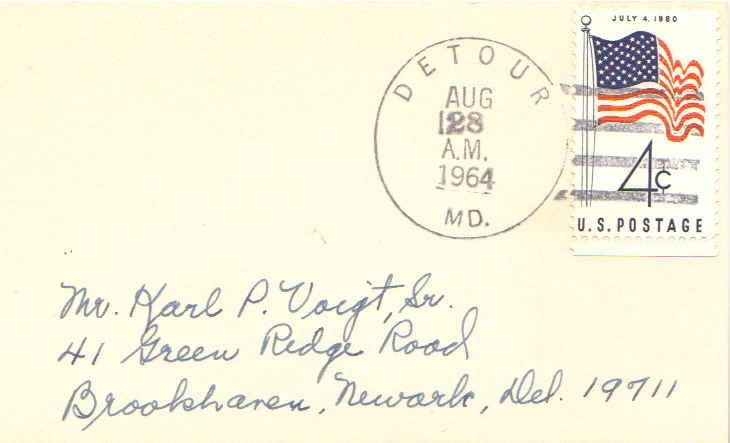 JULY 4, 1960
DETOUR
AUG
28
A.M.
1964
MD.
4¢
U.S. POSTAGE
Mr. Karl P. Voigt, Sr.
41 Green Ridge Road
Brookhaven, Newark, Del. 19711